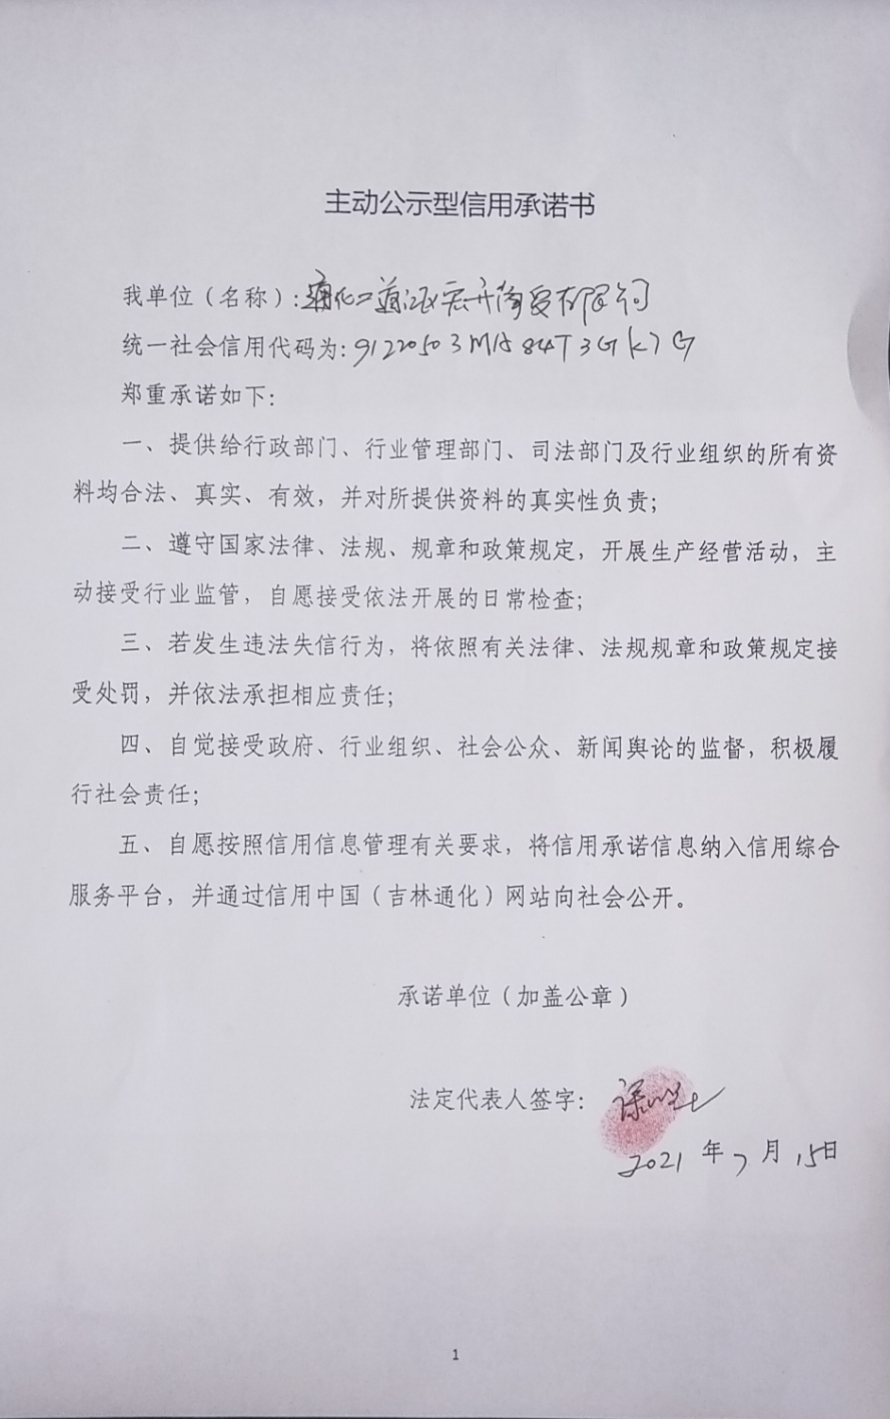 主动公示型信用承诺书
我单位（名称）：通化二道江区宏升商贸有限公司
统一社会信用代码为：91220503MA84T3GK7G
郑重承诺如下：
一、提供给行政部门、行业管理部门、司法部门及行业组织的所有资
料均合法、真实、有效，并对所提供资料的真实性负责；
二、遵守国家法律、法规、规章和政策规定，开展生产经营活动，主
动接受行业监管，自愿接受依法开展的日常检查；
三、若发生违法失信行为，将依照有关法律、法规规章和政策规定接
受处罚，并依法承担相应责任；
四、自觉接受政府、行业组织、社会公众、新闻舆论的监督，积极履
行社会责任；
五、自愿按照信用信息管理有关要求，将信用承诺信息纳入信用综合
服务平台，并通过信用中国（吉林通化）网站向社会公开。
承诺单位（加盖公章）
法定代表人签字：
2021年7月15日
1